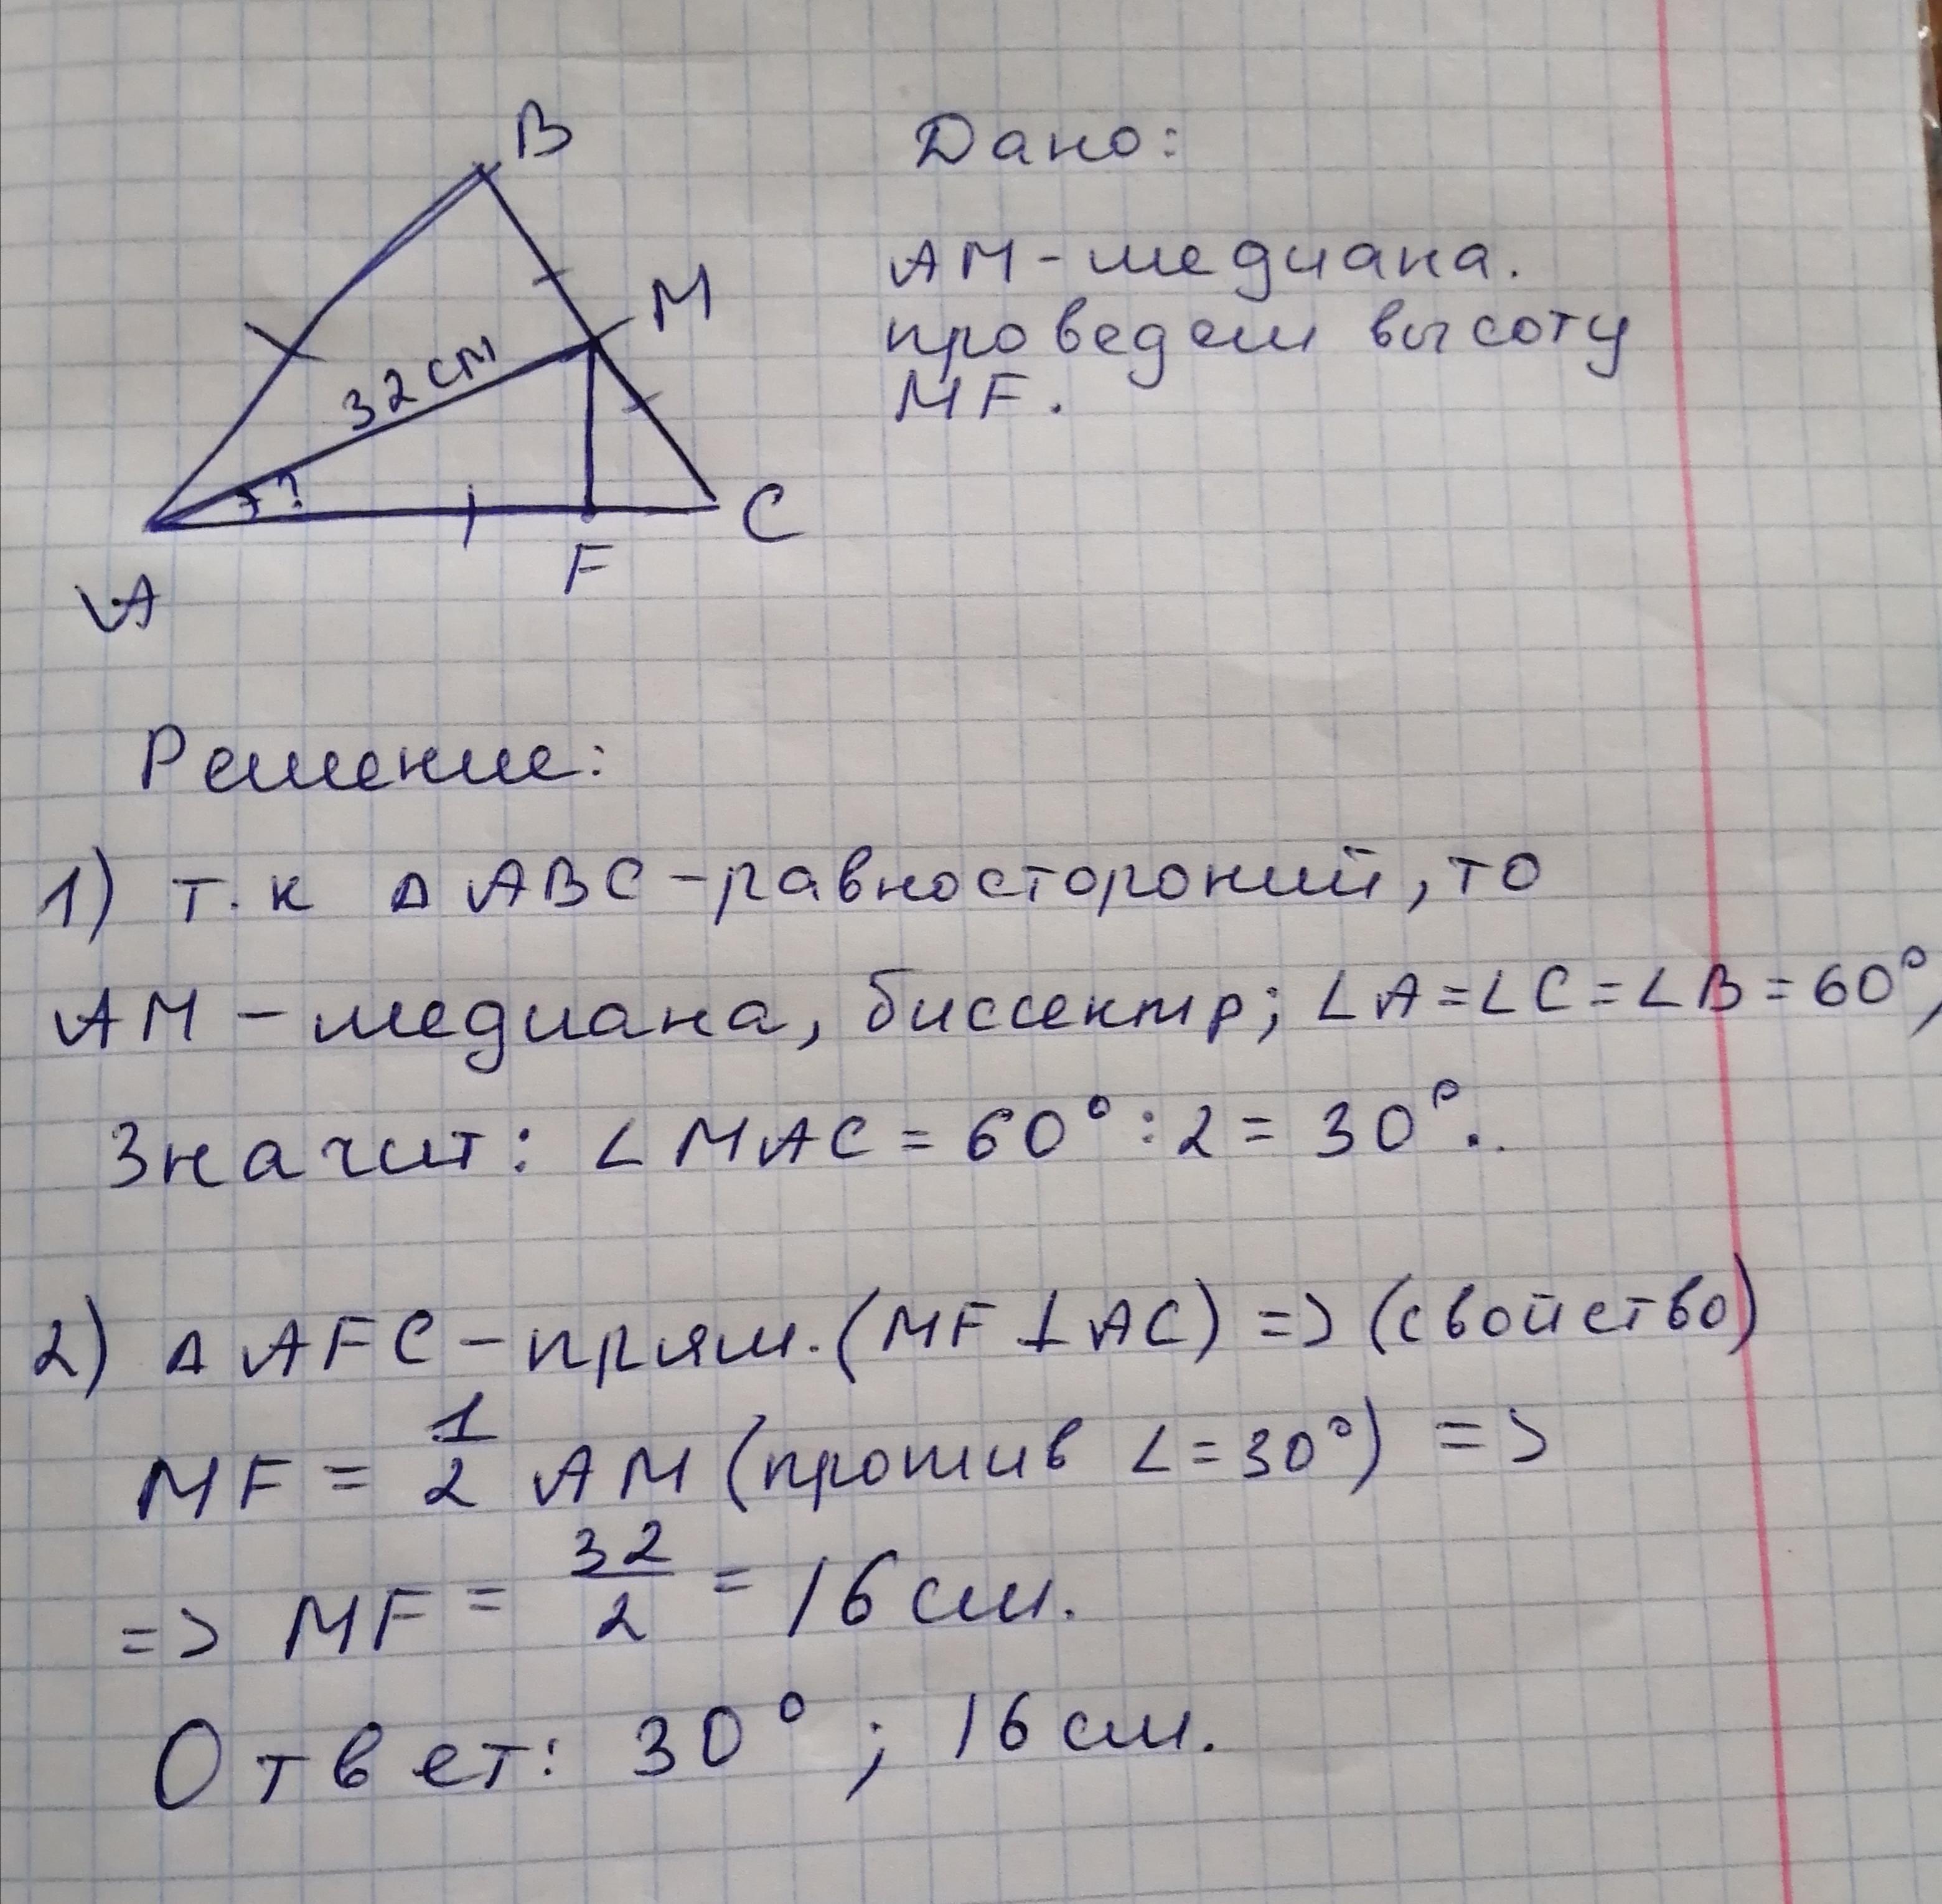 B
Дано:
M
AM - медиана.
32 см
проведем высоту
MF.
?
C
F
A
Решение:
1) т.к △ ABC - равностороний, то
AM - медиана, биссектр; ∠A=∠C=∠B=60°,
Значит: ∠MAC = 60° : 2 = 30°.
2) △ AFC - прям. (MF ⊥ AC) => (свойство)
MF = 1/2 AM (против ∠=30°) =>
=> MF = 32/2 = 16 см.
Ответ: 30° ; 16 см.